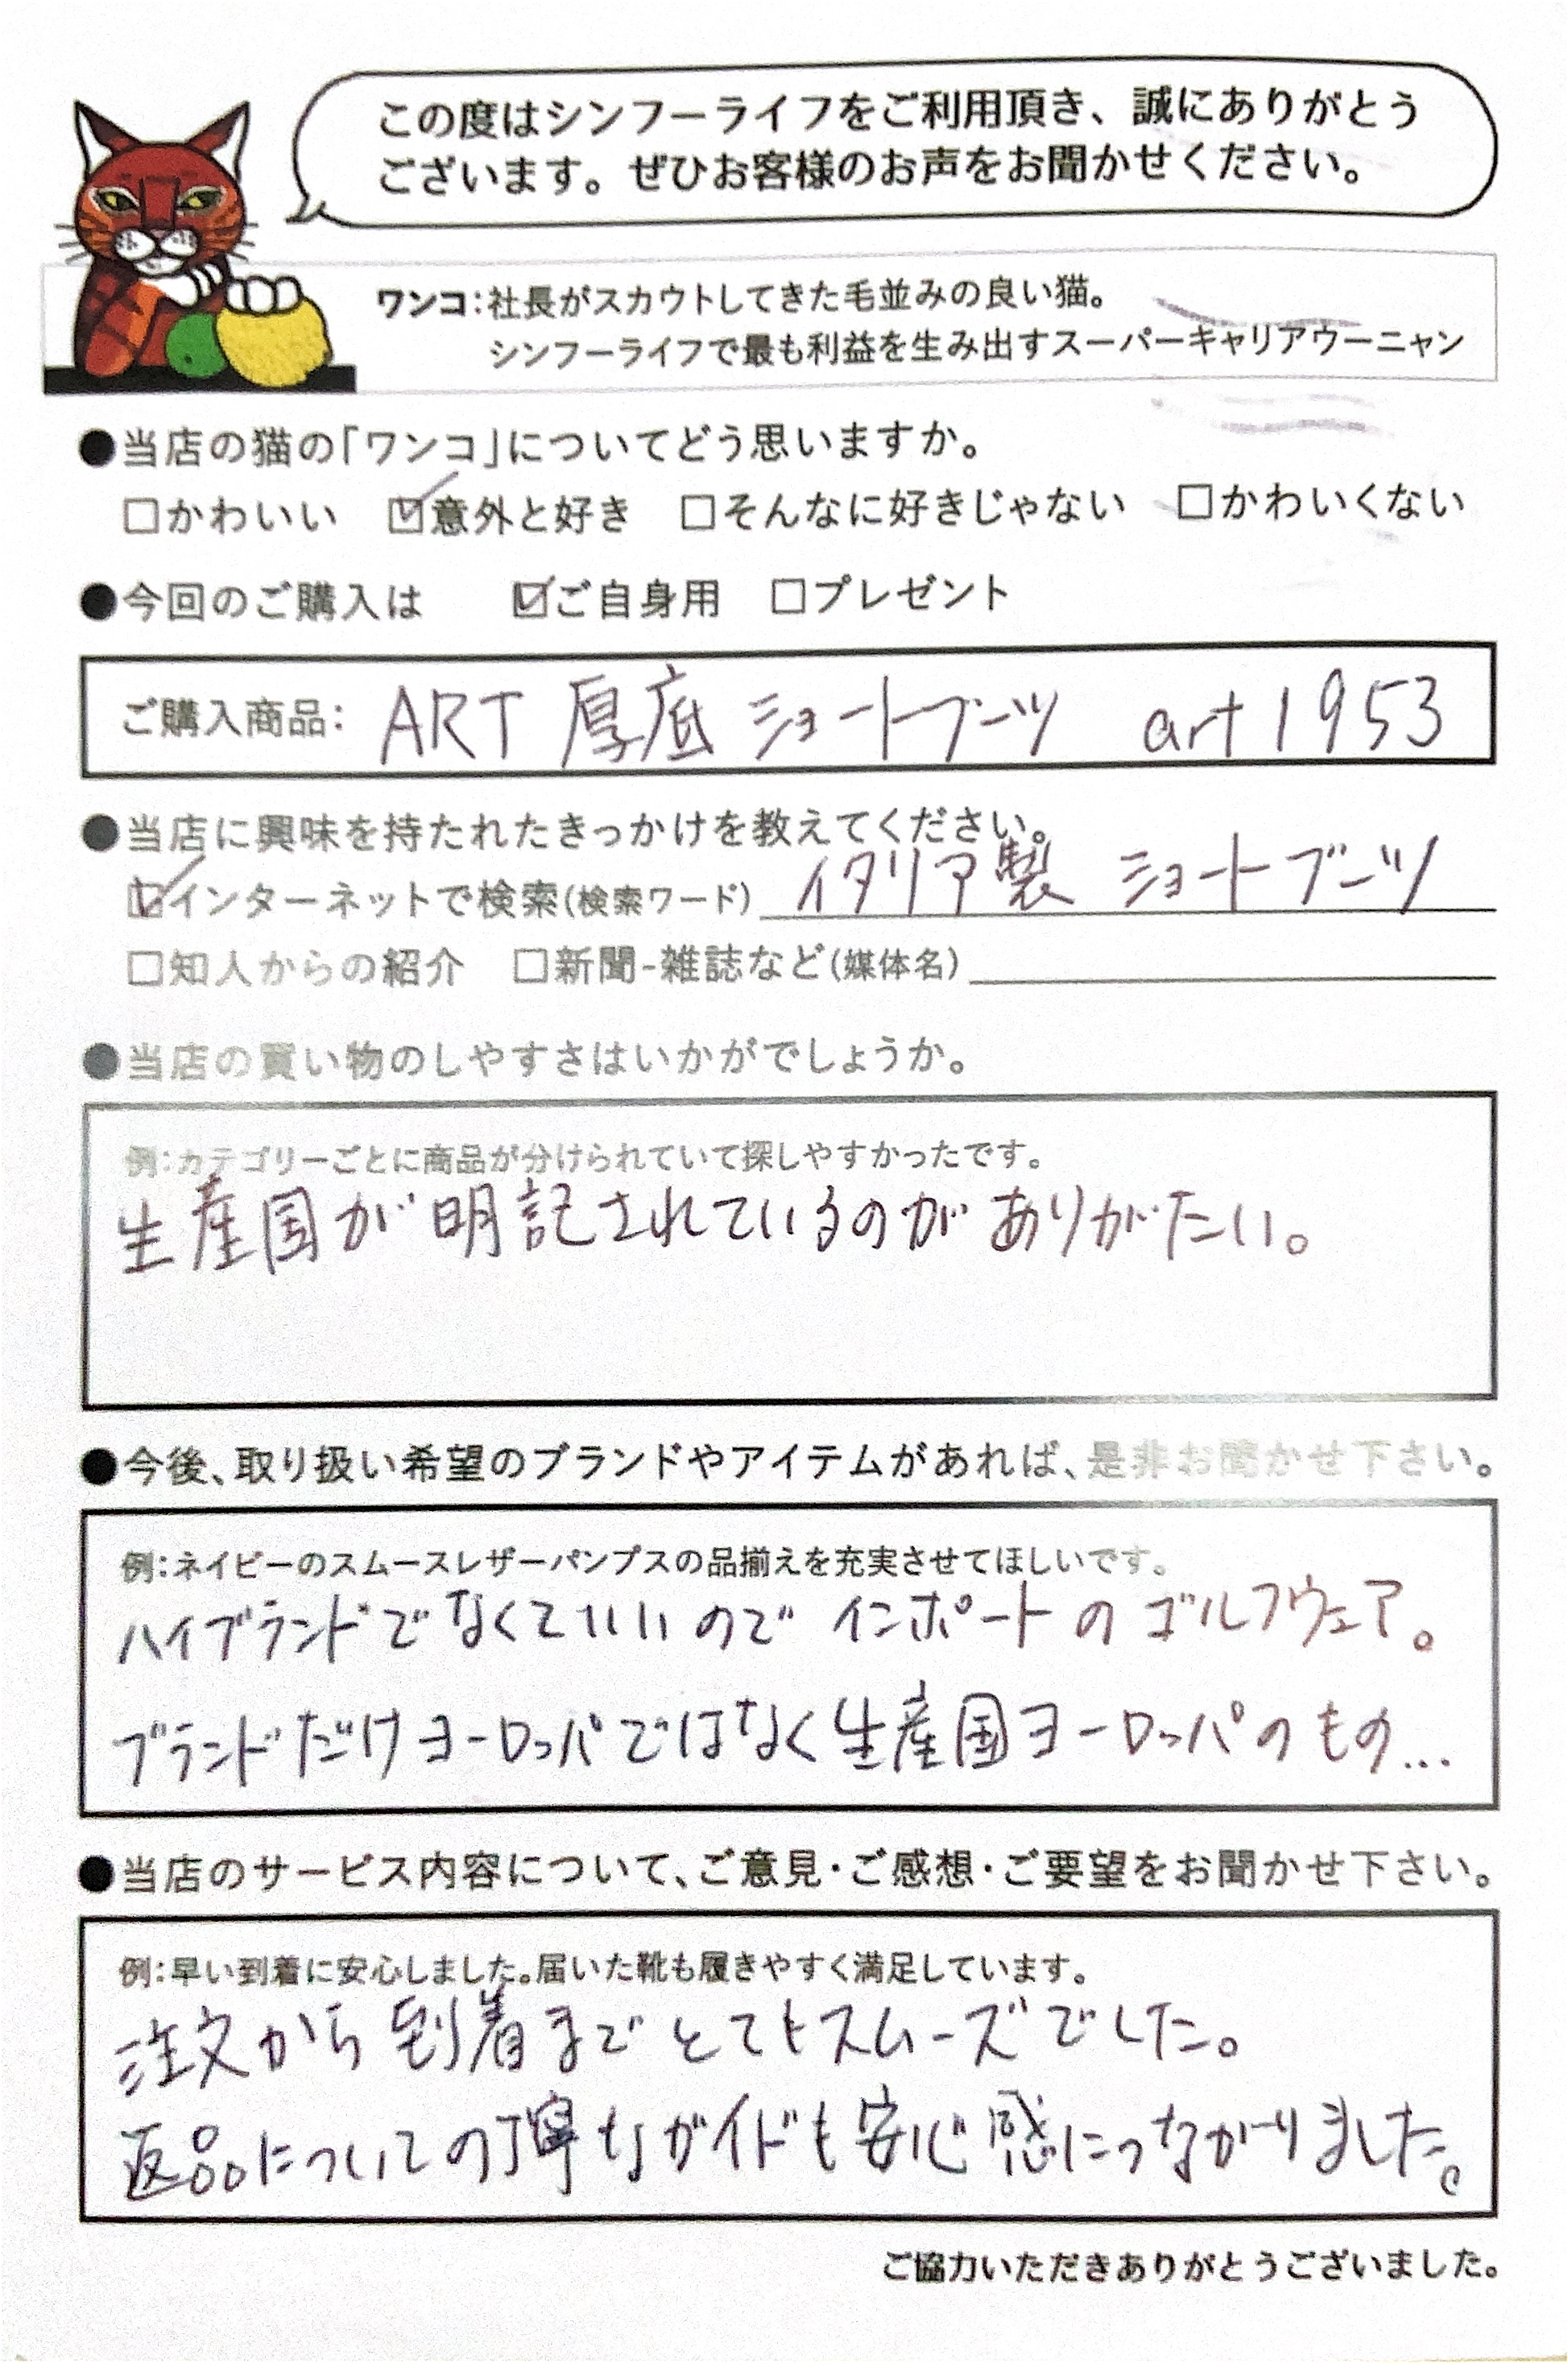 この度はシンフーライフをご利用頂き、誠にありがとう
ございます。ぜひお客様のお声をお聞かせください。
ワンコ：社長がスカウトしてきた毛並みの良い猫。
シンフーライフで最も利益を生み出すスーパーキャリアウーニャン
●当店の猫の「ワンコ」についてどう思いますか。
□かわいい ☑意外と好き □そんなに好きじゃない □かわいくない
●今回のご購入は ☑ご自身用 □プレゼント
ご購入商品： ART 厚底 ショートブーツ art1953
●当店に興味を持たれたきっかけを教えてください。
☑インターネットで検索(検索ワード) イタリア製 ショートブーツ
□知人からの紹介 □新聞-雑誌など(媒体名)
●当店の買い物のしやすさはいかがでしょうか。
例：カテゴリーごとに商品が分けられていて探しやすかったです。
生産国が明記されているのがありがたい。
●今後、取り扱い希望のブランドやアイテムがあれば、是非お聞かせ下さい。
例：ネイビーのスムースレザーパンプスの品揃えを充実させてほしいです。
ハイブランドでなくていいので インポートのゴルフウェア。
ブランドだけヨーロッパではなく生産国ヨーロッパのもの...
●当店のサービス内容について、ご意見・ご感想・ご要望をお聞かせ下さい。
例：早い到着に安心しました。届いた靴も履きやすく満足しています。
注文から到着までとてもスムーズでした。
返品についての丁寧なガイドも安心感につながりました。
ご協力いただきありがとうございました。